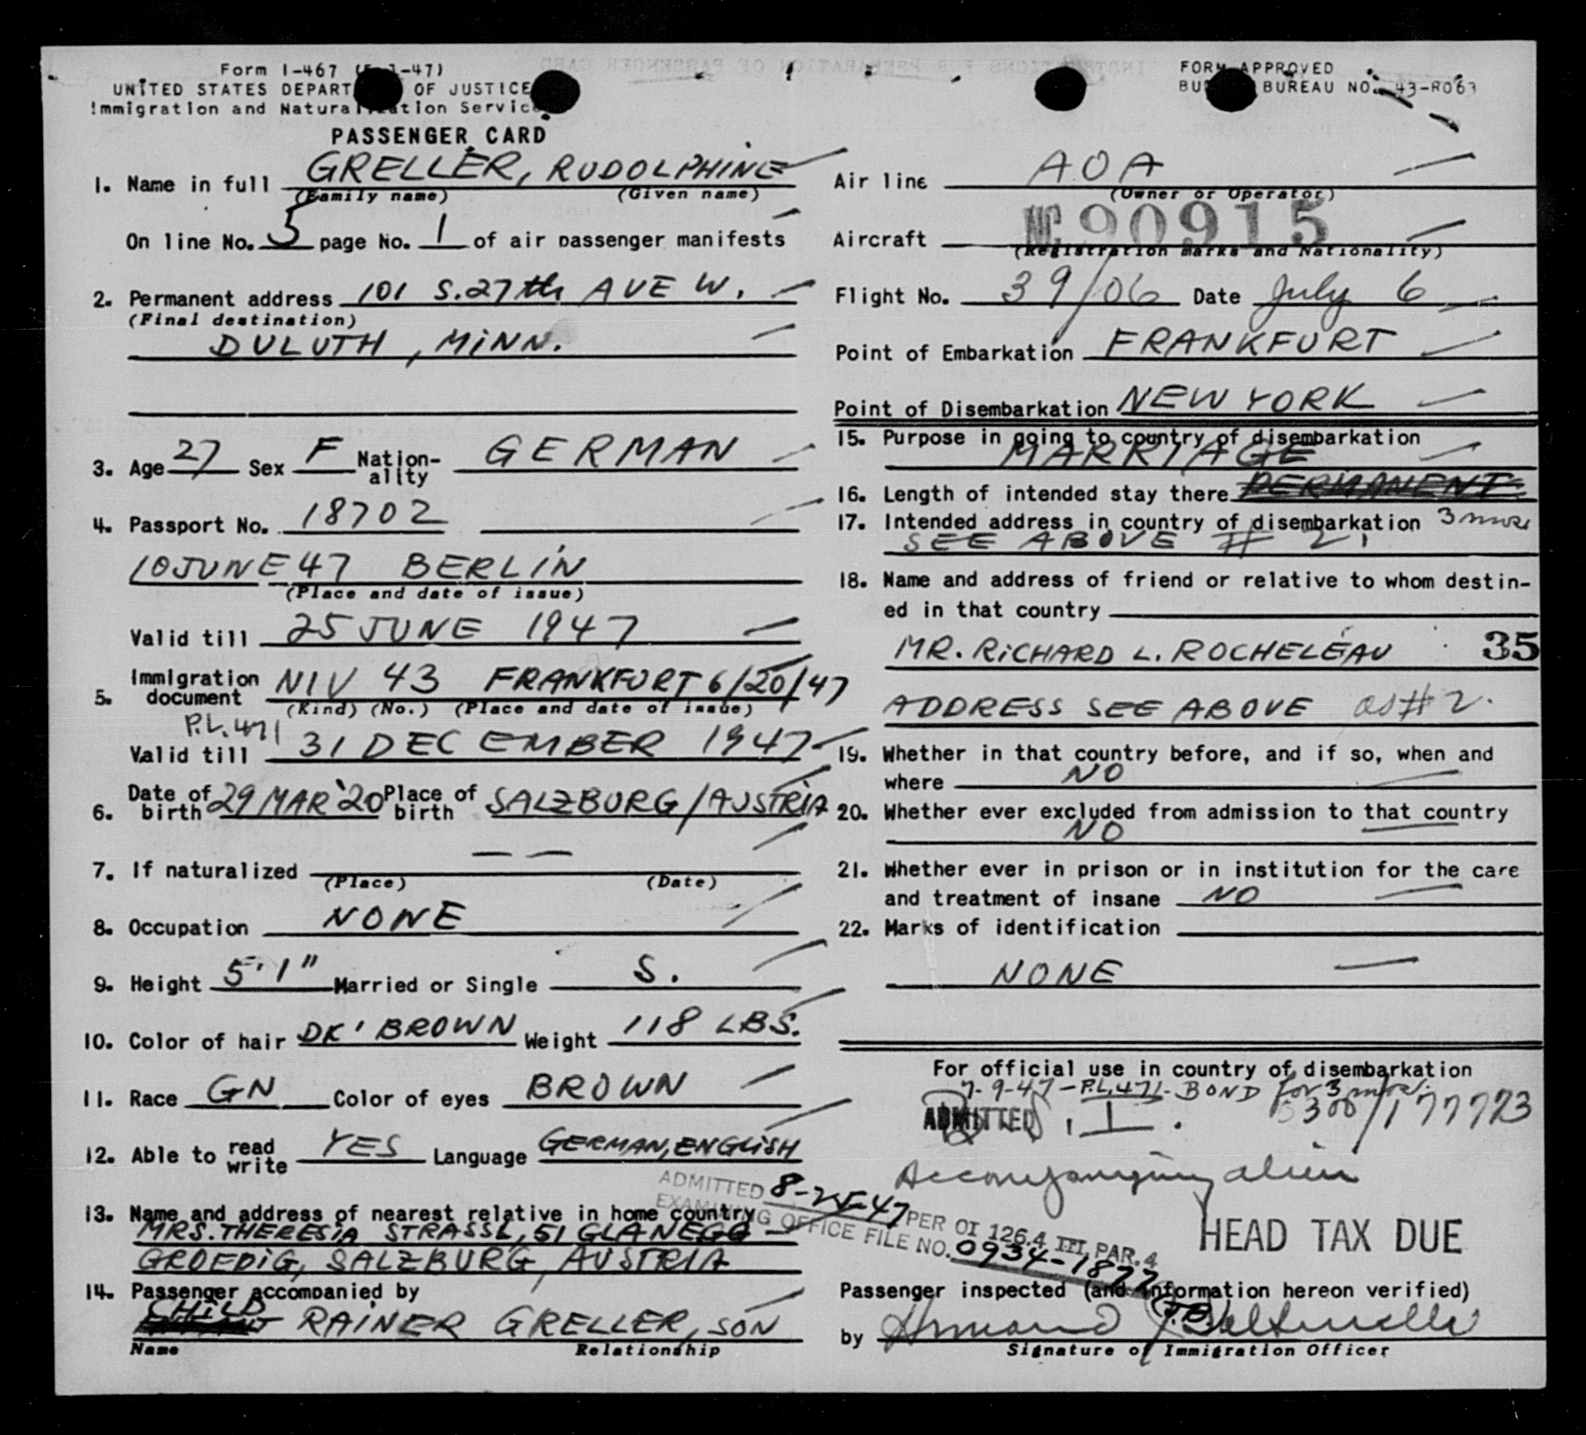 Form I-467 (5-1-47)
UNITED STATES DEPARTMENT OF JUSTICE
Immigration and Naturalization Service
FORM APPROVED
BUDGET BUREAU NO. 43-R063
PASSENGER CARD
1. Name in full GRELLER, RUDOLPHINE
(Family name) (Given name)
On line No. 5 page No. 1 of air passenger manifests
2. Permanent address 101 S. 27th AVE W.
(Final destination)
DULUTH, MINN.
3. Age 27 Sex F Nation-ality GERMAN
4. Passport No. 18702
10 JUNE 47 BERLIN
(Place and date of issue)
Valid till 25 JUNE 1947
5. Immigration document NIV 43 FRANKFURT 6/20/47
(Kind) (No.) (Place and date of issue)
P.L. 471
Valid till 31 DECEMBER 1947
6. Date of birth 29 MAR '20 Place of birth SALZBURG/AUSTRIA
7. If naturalized — —
(Place) (Date)
8. Occupation NONE
9. Height 5'1" Married or Single S.
10. Color of hair DK' BROWN Weight 118 LBS.
11. Race GN Color of eyes BROWN
12. Able to read write YES Language GERMAN, ENGLISH
13. Name and address of nearest relative in home country
MRS. THERESIA STRASSL, 51 GLANEGG
GROEDIG, SALZBURG, AUSTRIA
14. Passenger accompanied by
CHILD RAINER GRELLER, SON
Name Relationship
Air line AOA
(Owner or Operator)
Aircraft NC 90915
(Registration marks and Nationality)
Flight No. 39/06 Date July 6
Point of Embarkation FRANKFURT
Point of Disembarkation NEW YORK
15. Purpose in going to country of disembarkation
MARRIAGE
16. Length of intended stay there PERMANENT
17. Intended address in country of disembarkation 3 mos
SEE ABOVE # 2.
18. Name and address of friend or relative to whom destin-
ed in that country
MR. RICHARD L. ROCHELEAU 35
ADDRESS SEE ABOVE as # 2.
19. Whether in that country before, and if so, when and
where NO
20. Whether ever excluded from admission to that country
NO
21. Whether ever in prison or in institution for the care
and treatment of insane NO
22. Marks of identification
NONE
For official use in country of disembarkation
7-9-47-P.L. 471- BOND for 3 mos.
ADMITTED I. 300/177773
Accompanying alien
ADMITTED 8-25-47 PER OI 126.4 III PAR. 4
EXAMINING OFFICE FILE NO. 0934-1877
HEAD TAX DUE
Passenger inspected (and information hereon verified)
by
Signature of Immigration Officer